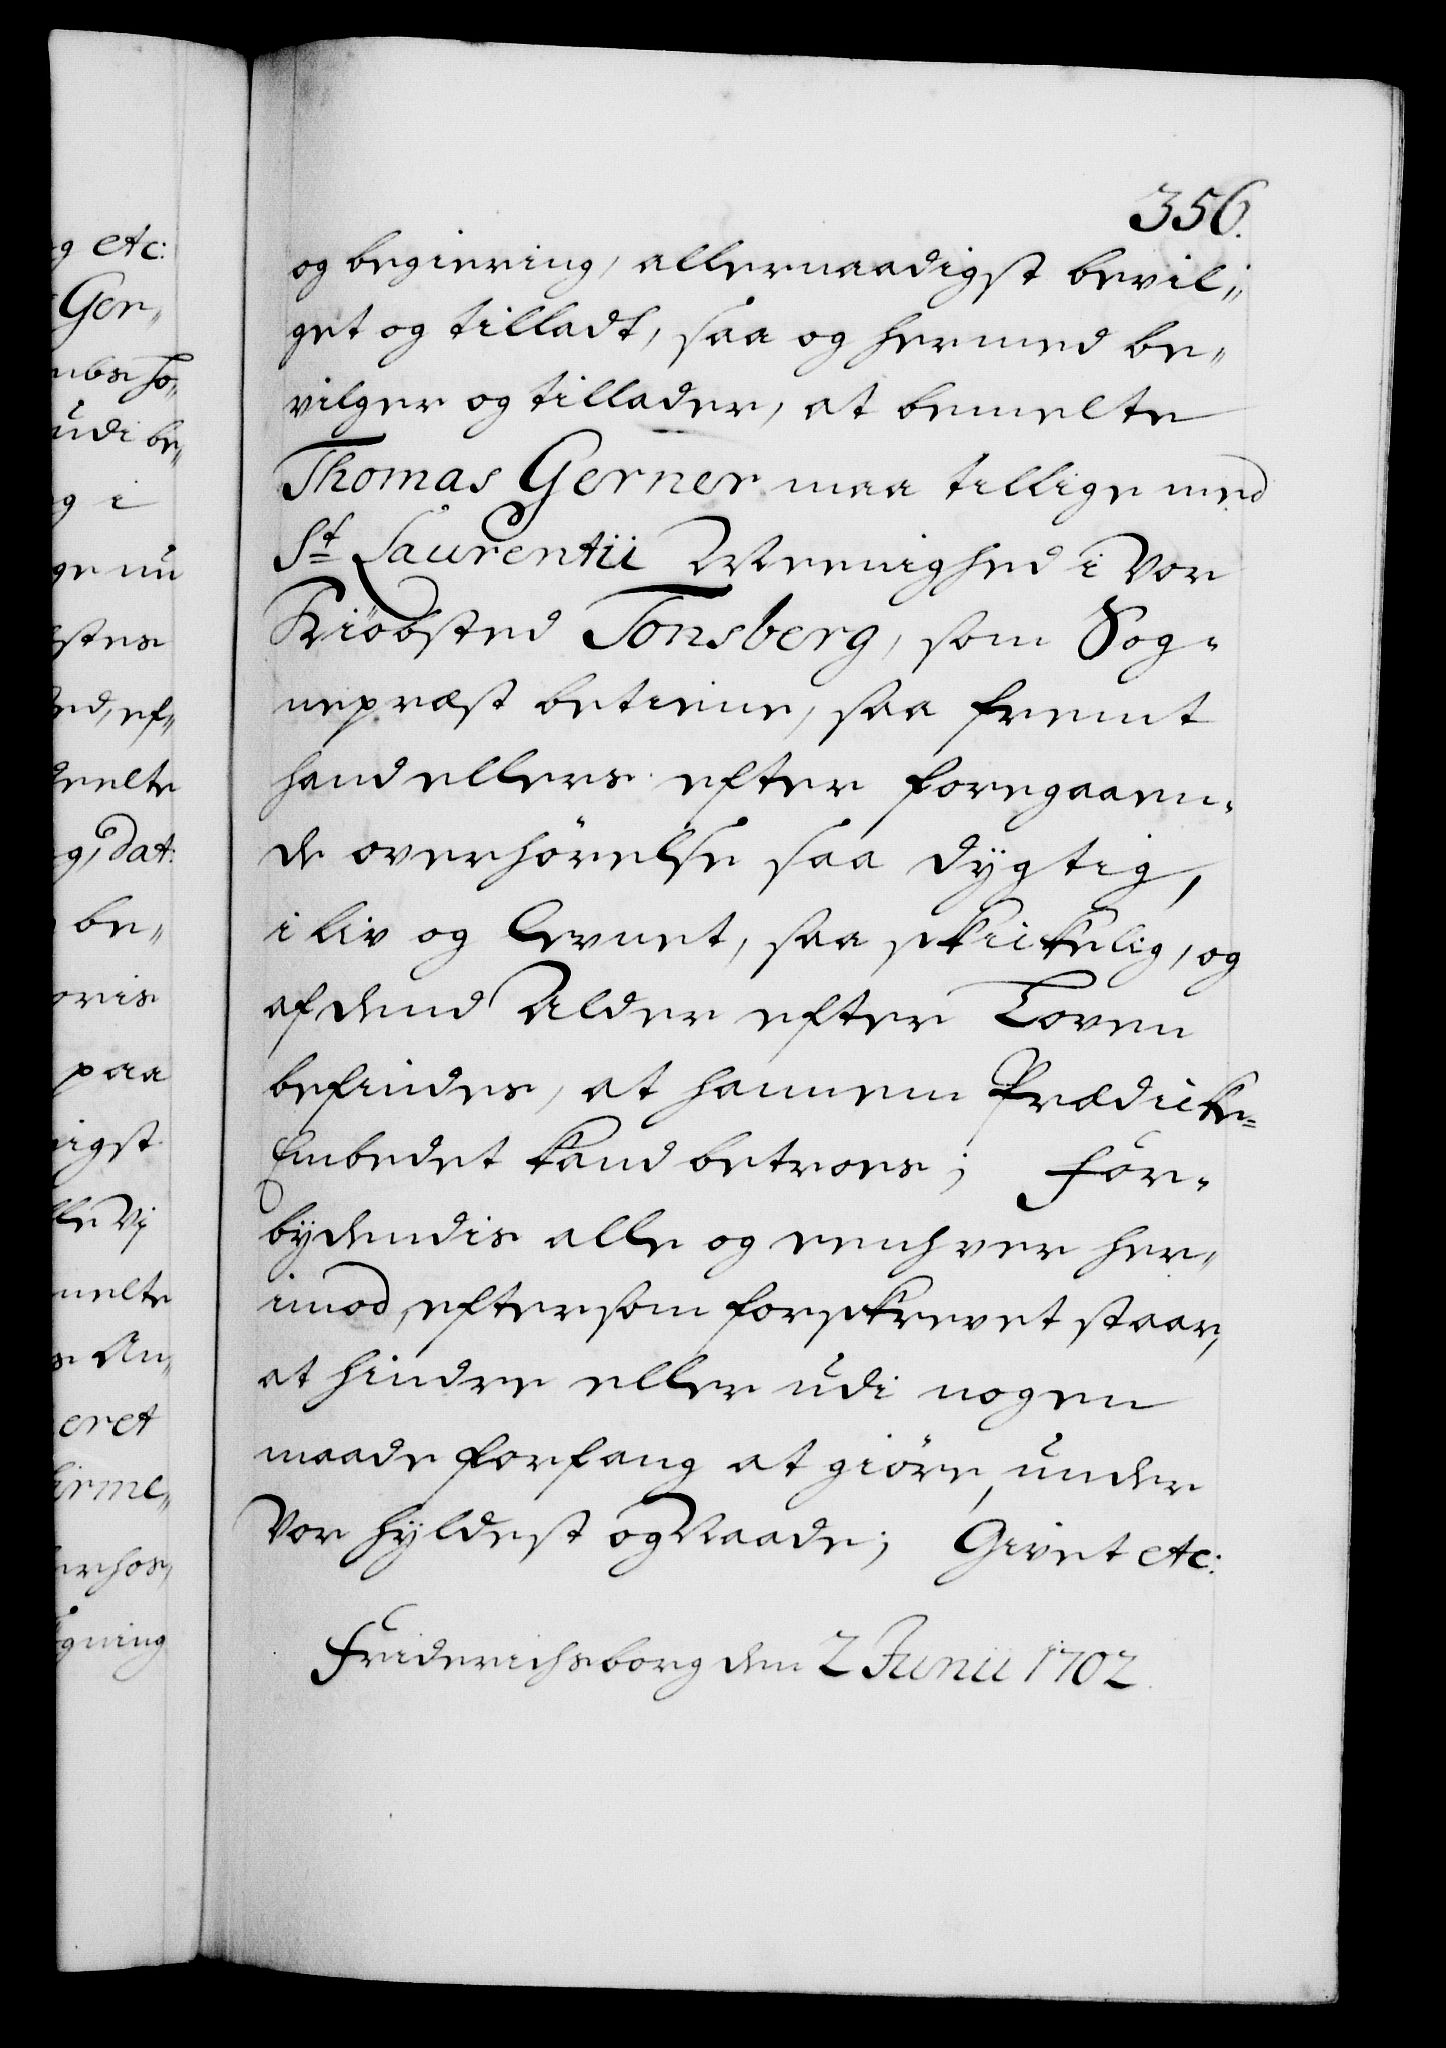 356.
og begiering, allernaadigst bevil-
get og tilladt, saa og hermed be-
vilger og tillader, at bemelte
Thomas Gerner maa tillige med
St Laurentii Meenighed i Vor
Kiöbsted Tonsberg, som Sog-
nepræst betiene, saa fremt
hand ellers efter foregaaen-
de overhörelse saa dygtig,
i liv og levnet, saa skickelig, og
af dend Alder efter Loven
befindes, at hannem Prædicke-
Embedet kand betroes; For-
bydendis alle og eenhver her-
imod, eftersom forskrevet staar,
at hindre eller udi nogen
maade forfang at giöre, under
Vor hyldest og Naade; Givet etc:
Friderichsborg den 2 Junii 1702.
g etc:
Ger-
udi be-
g i
ge nu
ed, ef-
g, dat:
be-
oris
paa
igst
lle Vi
melte
An-
eret
irme-
erhos,
gning